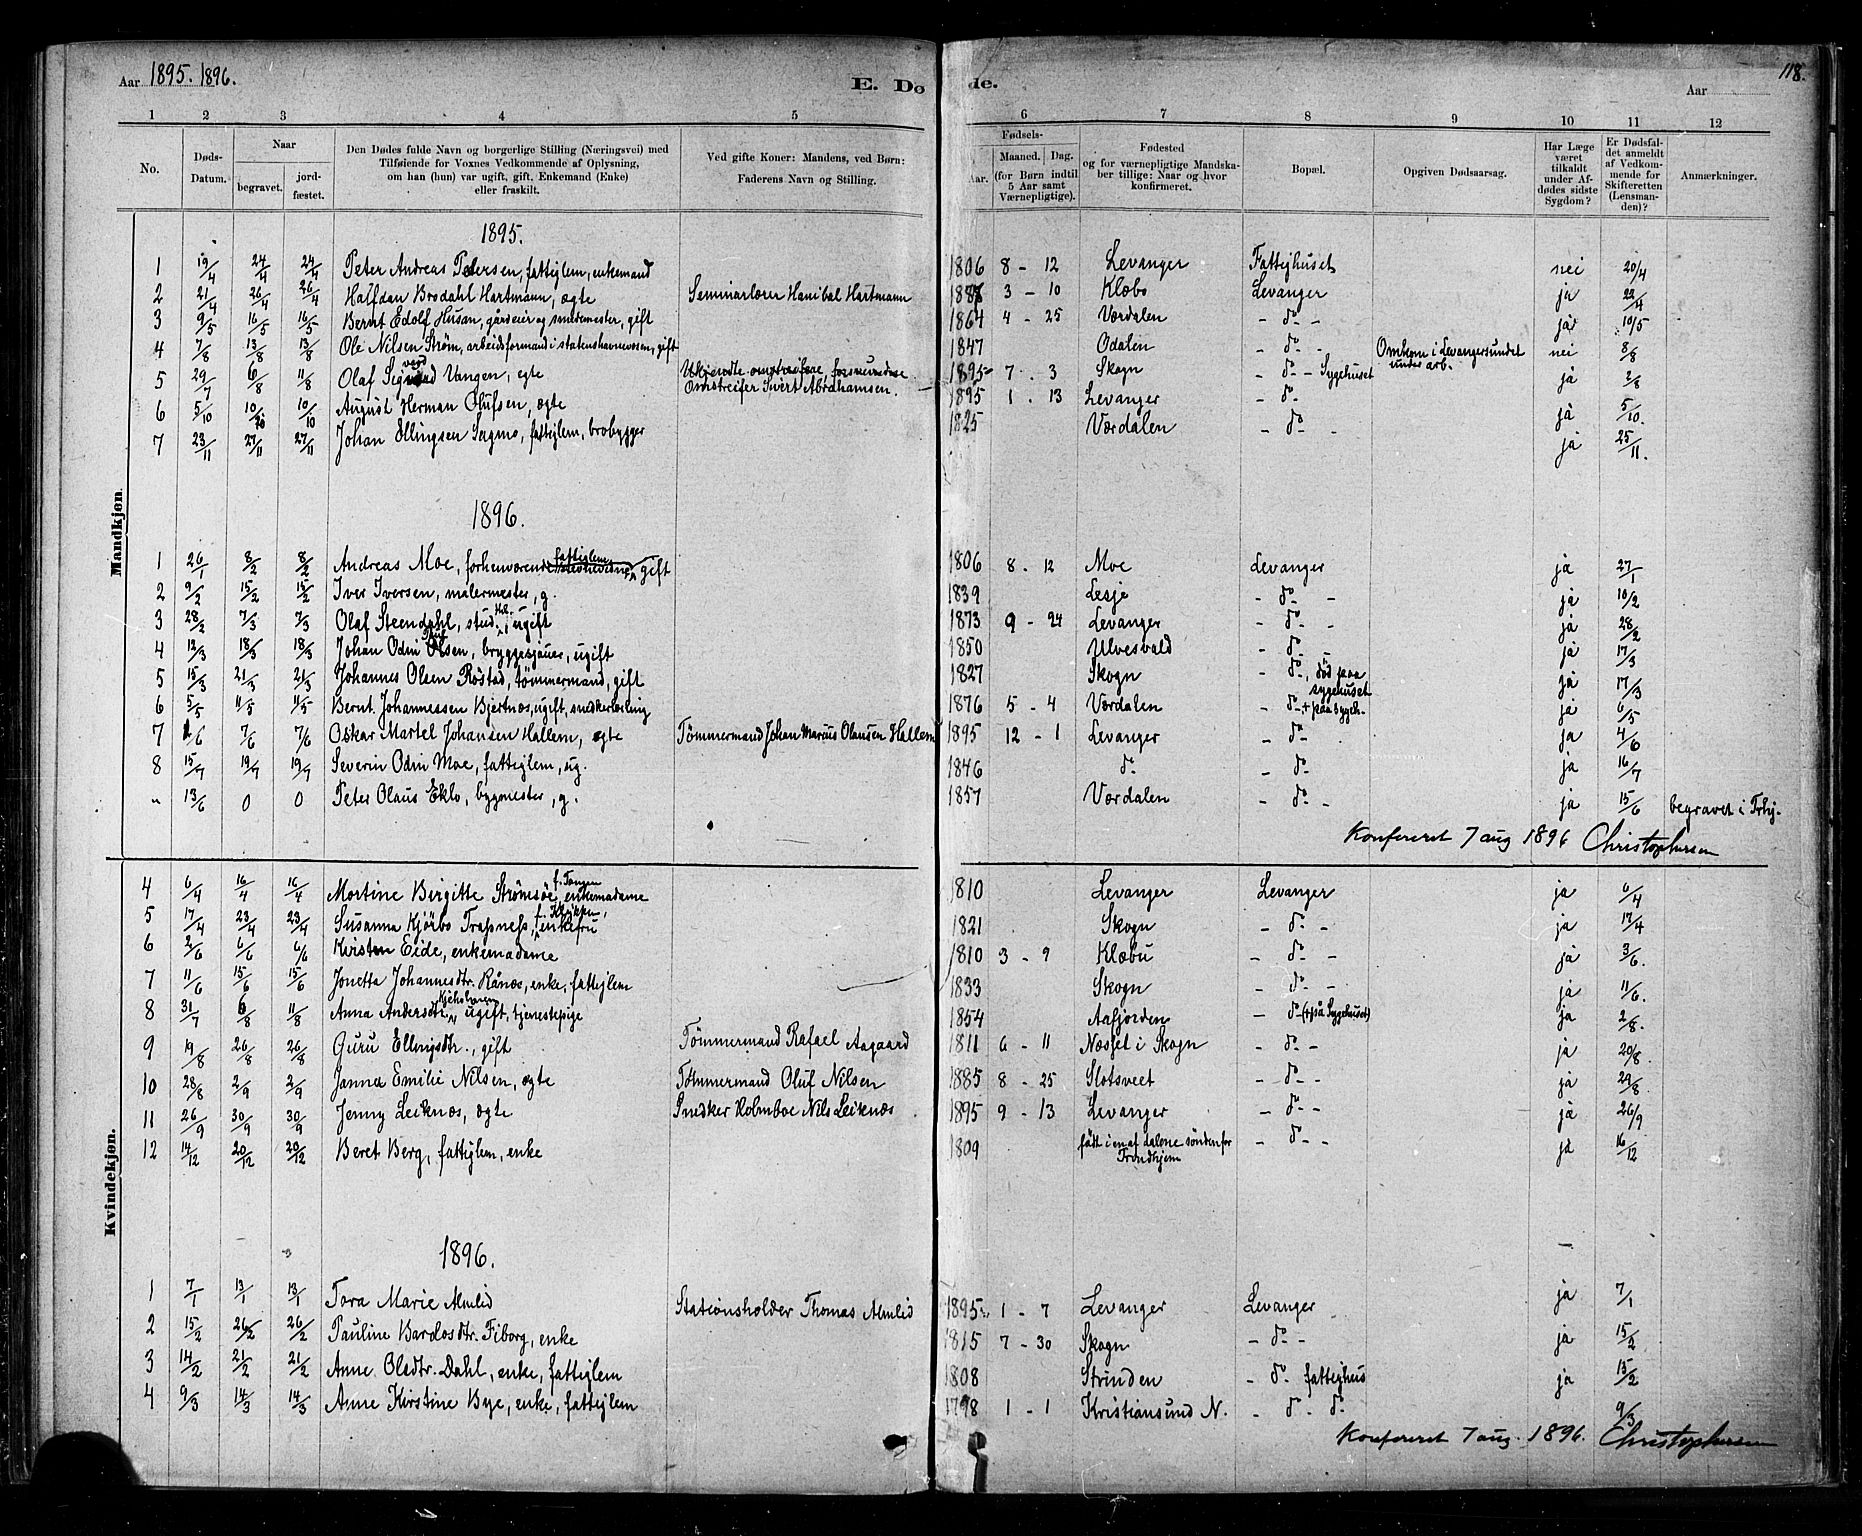 Aar 1895. 1896. E. Do de. Aar 118.
1 2 3 4 5 6 7 8 9 10 11 12
No. Døds-Datum. Naar begravet. jord-fæstet. Den Dødes fulde Navn og borgerlige Stilling (Næringsvei) med Tilføiende for Voxnes Vedkommende af Oplysning, om han (hun) var ugift, gift, Enkemand (Enke) eller fraskilt. Ved gifte Koner: Mandens, ved Børn: Faderens Navn og Stilling. Fødsels- Aar. Maaned. Dag. (for Børn indtil 5 Aar samt Værnepligtige). Fødested og for værnepligtige Mandskaber tillige: Naar og hvor konfirmeret. Bopæl. Opgiven Dødsaarsag. Har Læge været tilkaldt under Afdødes sidste Sygdom? Er Dødsfaldet anmeldt af Vedkommende for Skifteretten (Lensmanden)? Anmærkninger.
Mandkjøn.
1895.
1 19/4 24/4 24/4 Peter Andreas Petersen, fattiglem, enkemand 1806 8 - 12 Levanger Fattighuset nei 20/4
2 21/4 26/4 26/4 Halfdan Brodahl Hartmann, ægte Seminarlærer Hanibal Hartmann 3 - 10 Klæbo Levanger ja 22/4
3 9/5 16/5 16/5 Bernt Edolf Husan, gårdeier og smedemester, gift 1864 4 - 25 Værdalen - do - ja 10/5
4 7/8 13/8 13/8 Ole Nilsen Strøm, arbeidsformand i statenshavnevæsen, gift 1847 Odalen - do - Omkom i Levangersundet under arb. nei 8/8
5 29/7 6/8 11/8 Olaf Vangen, ægte Omstreifer Sivert Abrahamsen. 1895 7 . 3 Skogn - do - Sygehuset ja 2/8
6 5/10 10/10 10/10 August Herman Olufsen, ægte 1895 1 . 13 Levanger - do - ja 5/10.
7 23/11 27/11 27/11 Johan Ellingsen Sagmo, fattiglem, brobygger 1825 Værdalen - do - ja 25/11.
1896.
1 26/1 8/2 8/2 Andreas Moe, forhenværende fattiglem gift 1806 8 . 12 Moe Levanger ja 27/1
2 9/2 15/2 15/2 Iver Iversen, malermester, g. 1839 Lesje - do - ja 10/2
3 28/2 7/3 7/3 Olaf Steendahl, stud. ugift 1873 9 - 24 Levanger - do - ja 28/2
4 12/3 18/3 18/3 Johan Odin Olsen, bryggesjauer, ugift 1850 Ulvesvald - do - ja 17/3
5 15/3 21/3 21/3 Johannes Olsen Røstad, tømmermand, gift 1827 Skogn - do -, død paa sygehuset ja 17/3
6 5/5 11/5 11/5 Bernt Johannessen Bjertnæs, ugift, snedkerlærling 1876 5 - 4 Værdalen - do - + paa sygeh - ja 6/5
7 2/6 7/6 7/6 Oskar Martel Johansen Hallem, ægte Tømmermand Johan Marcus Olausen Hallem 1895 12 - 1 Levanger - do - ja 4/6
8 15/7 19/7 19/7 Severin Odin Moe, fattiglem, ug. 1846 do - do - ja 16/7
" 13/6 0 0 Peter Olaus Eklo, bygmester, g. 1857 Værdalen - do - ja 15/6 begravet i Trhj.
Konfereret 7 aug 1896 Christophersen
Kvindekjøn.
4 6/4 16/4 16/4 Mortine Birgitte Strømsøe, f. Tangen enkemadame 1810 Levanger Levanger ja 6/4
5 17/4 23/4 23/4 Susanna Kjöbo Trapness, enkefru 1821 Skogn - do - ja 17/4
6 2/6 6/6 6/6 Kirsten Eide, enkemadame 1810 3 - 9 Klæbu - do - ja 3/6.
7 11/6 15/6 15/6 Jonetta Johannesdtr. Rånæs, enke, fattiglem 1833 Skogn - do - ja 11/6.
8 31/7 6/8 11/8 Anna Andersdtr. ugift, tjenestepige 1854 Aafjorden - do (+ på Sygehuset) ja 2/8.
9 19/8 26/8 26/8 Guru Ellingsdtr., gift Tömmermand Rafael Aagaard 1811 6 - 11 Næsset i Skogn - do - ja 20/8.
10 28/8 2/9 2/9 Janna Emilie Nilsen, ægte Tömmermand Oluf Nilsen 1885 8 - 25 Slotsveet - do - ja 29/8.
11 26/9 30/9 30/9 Jenny Leiknæs, ægte Snedker Holmboe Nils Leiknæs 1895 9 - 13 Levanger - do - ja 26/9
12 14/12 20/12 20/12 Beret Berg, fattiglem, enke 1809 født i en af dalene söndenfor Trondhjem - do - ja 16/12
1896.
1 7/1 13/1 13/1 Tora Marie Almlid Stationsholder Thomas Almlid 1895 1 - 7 Levanger Levanger ja 7/1
2 15/2 26/2 26/2 Pauline Bardosdtr. Fiborg, enke 1815 7 - 30 Skogn - do - ja 15/2
3 14/2 21/2 21/2 Anne Olsdtr. Dahl, enke, fattiglem 1808 Strinden - do fattighus ja 15/2
4 9/3 14/3 14/3 Anne Kirstine Bye, enke, fattiglem 1798 1 - 1 Kristiansund N. - do - do 9/3
Konfereret 7 aug. 1896. Christophersen